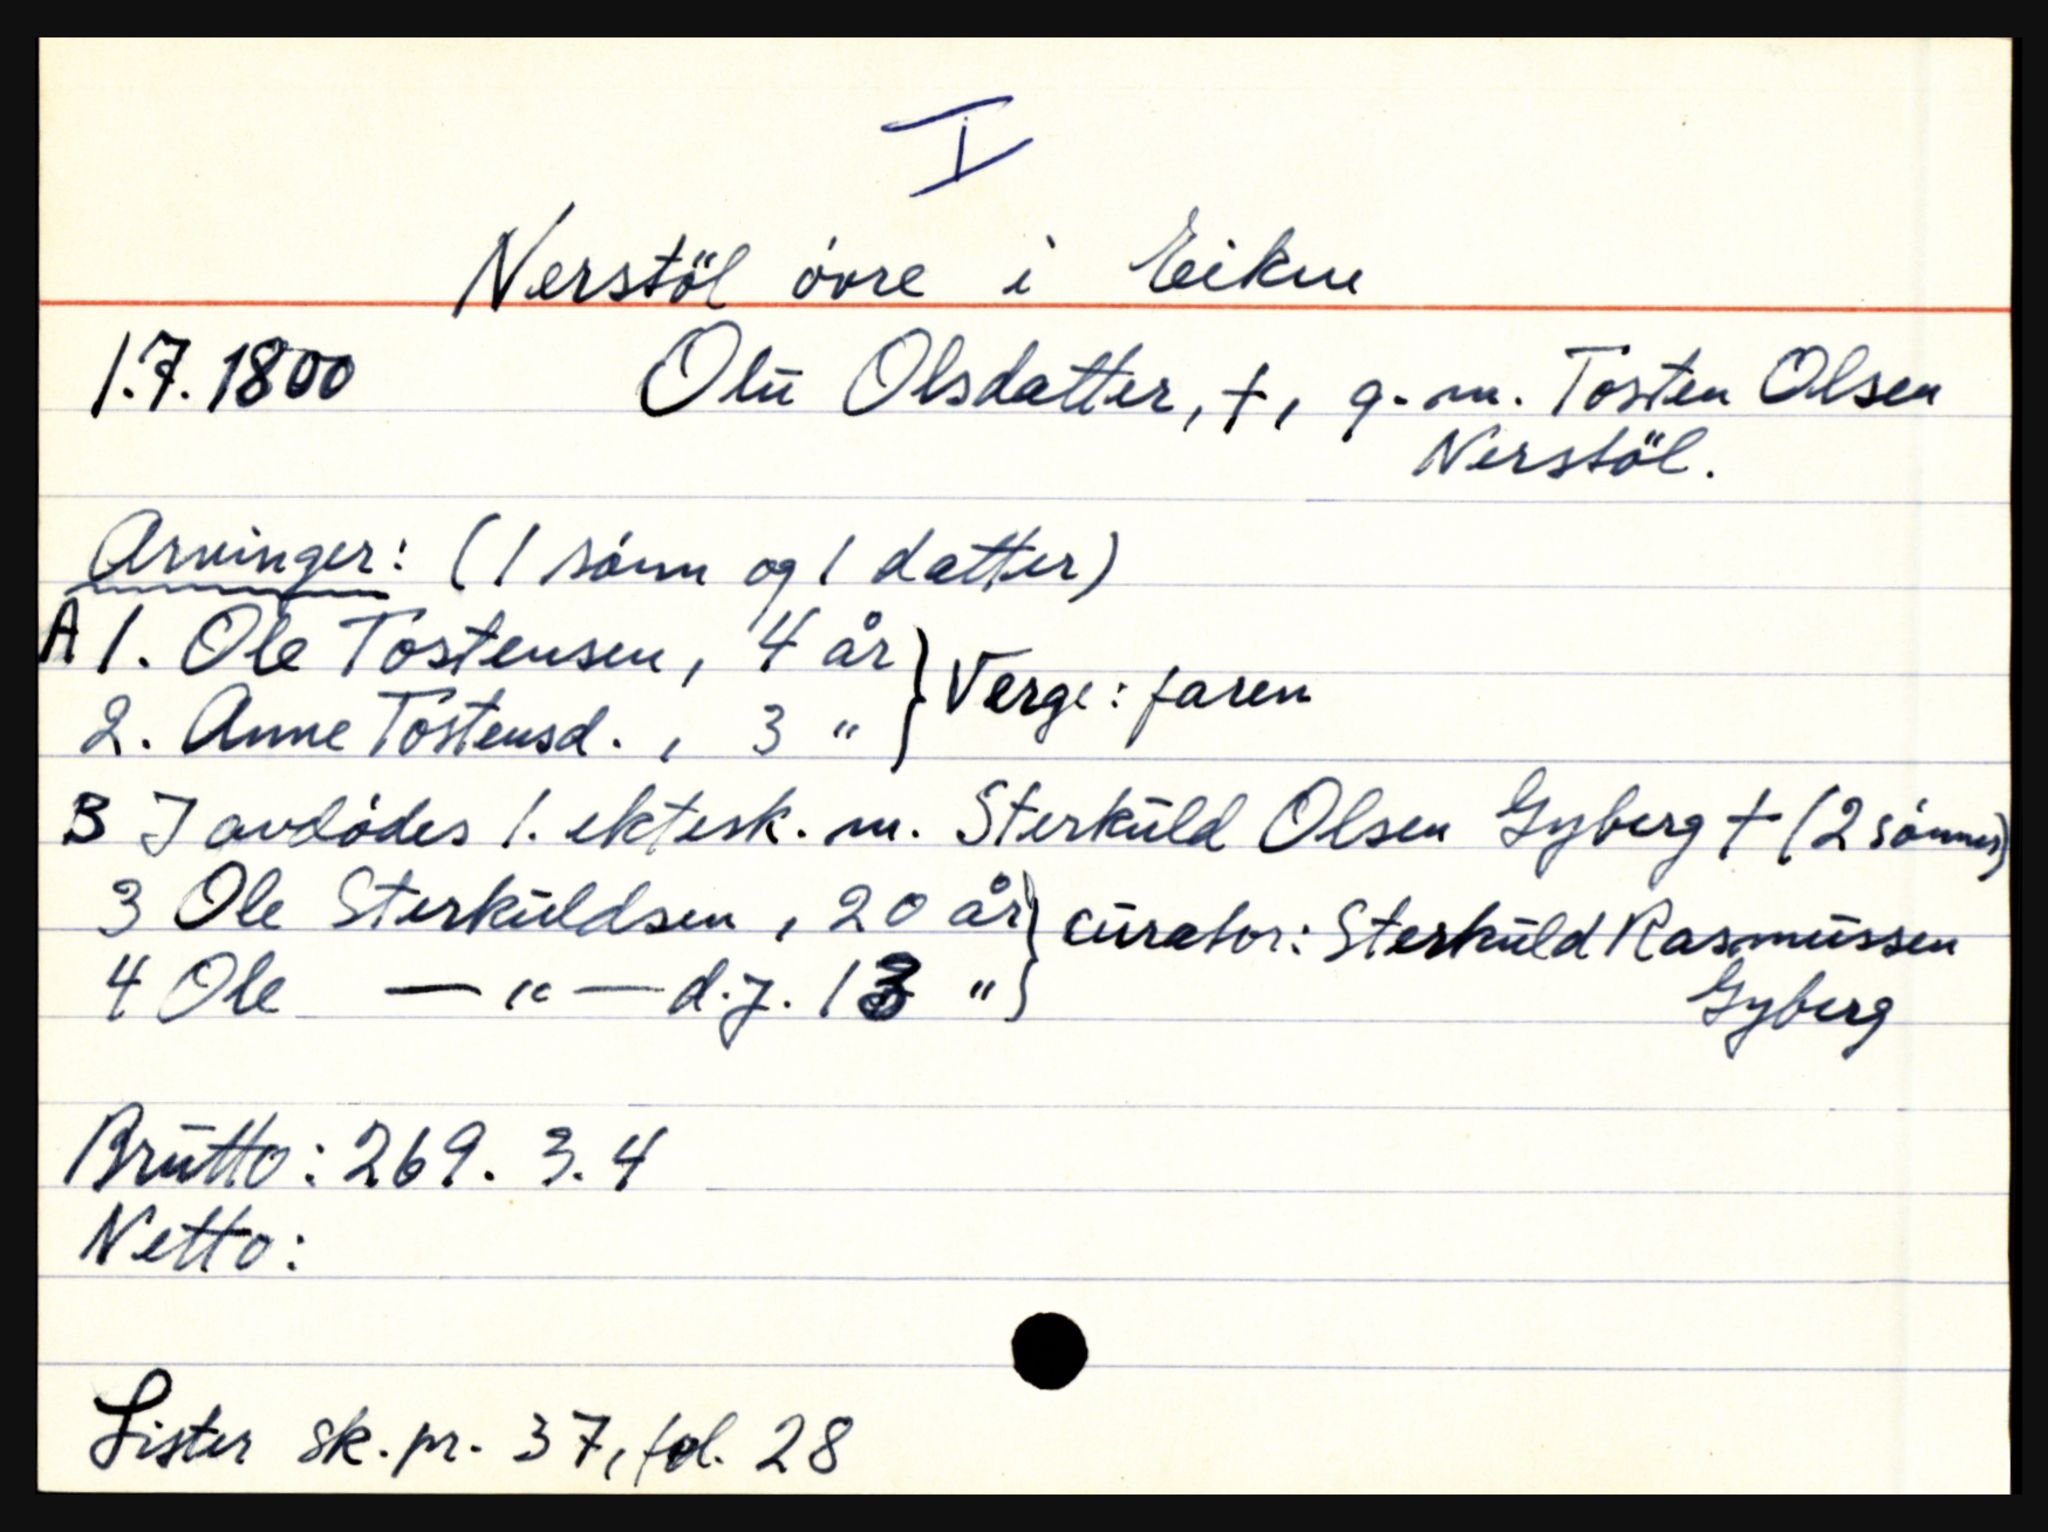 I
Nerstöl övre i Eiken
1.7.1800 Olu Olsdatter, †, g.m. Tosten Olsen
Nerstöl.
Arvinger: (1 sönn og 1 datter)
A 1. Ole Tostensen, 4 år } Verge: faren
2. Anne Tostensd., 3 " }
B I avdödes 1. ektesk. m. Sterkuld Olsen Gyberg † (2 sönner)
3 Ole Sterkuldsen, 20 år } curator: Sterkuld Rasmussen
4 Ole — " — d.y. 13 " } Gyberg
Brutto: 269. 3. 4
Netto:
Lister sk.pr. 37, fol. 28